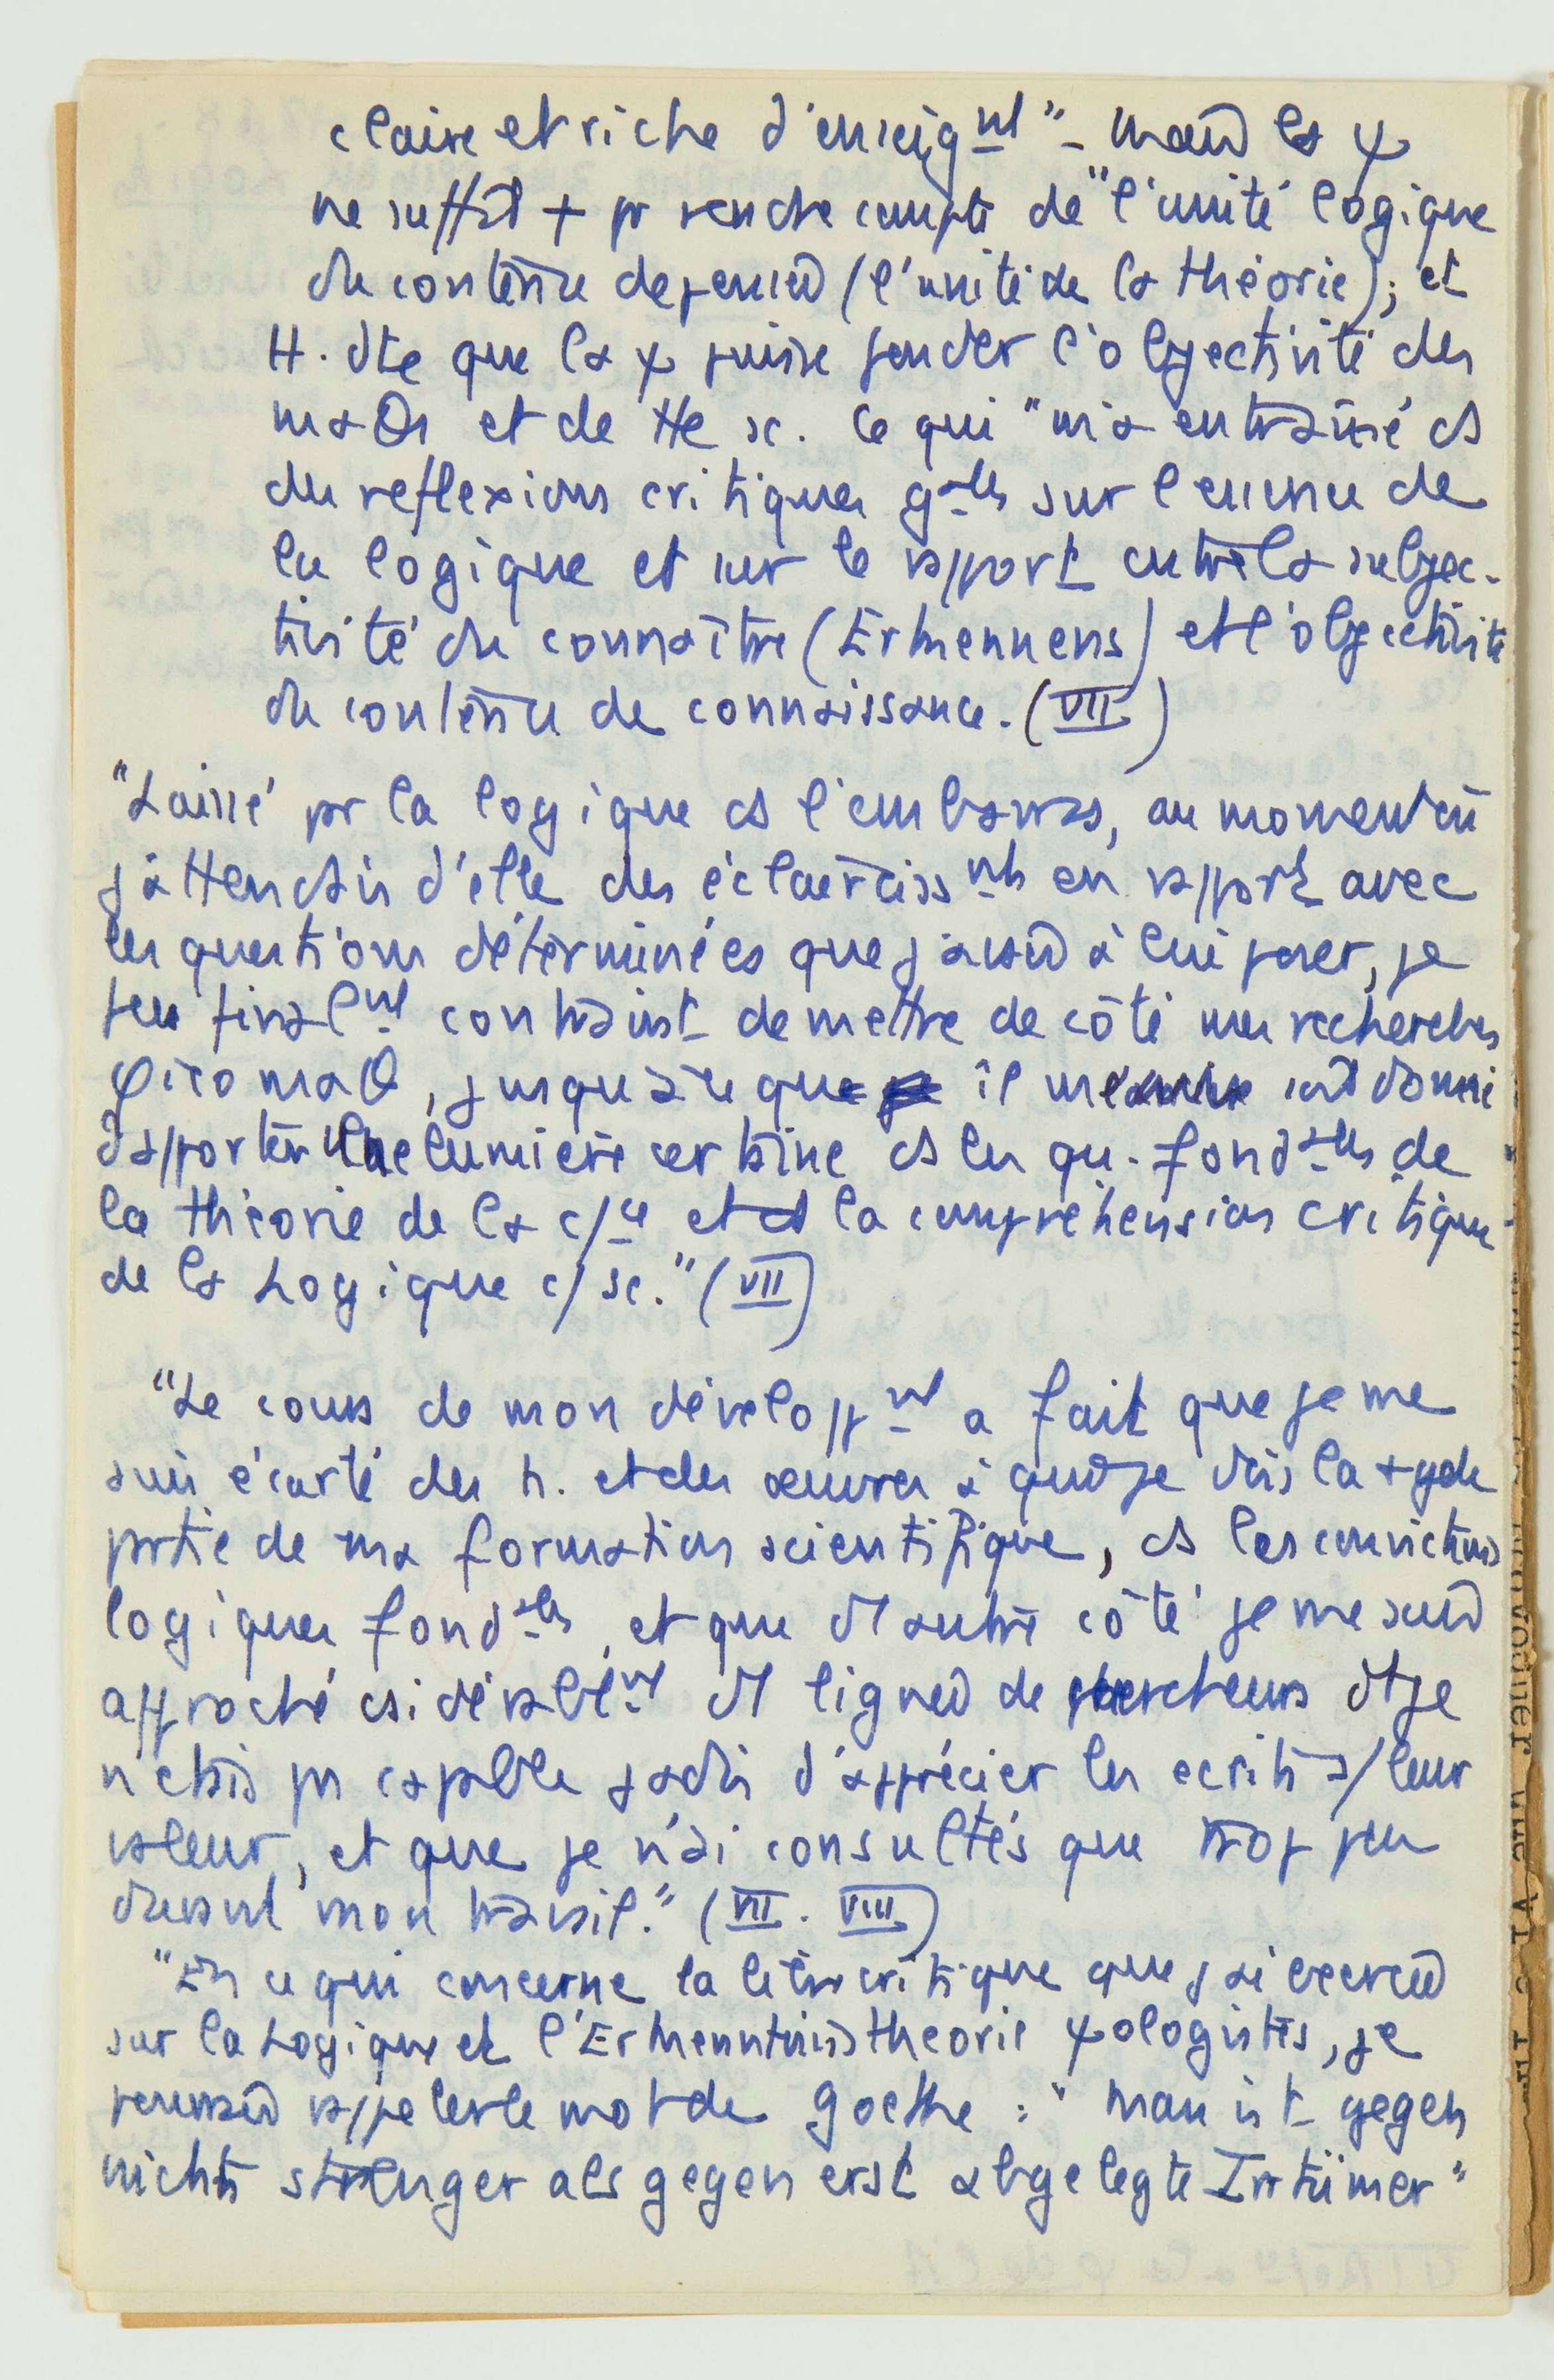 claire et riche d'enseignt" - mais la ψ
ne suffit + pr rendre compte de "l'unité logique
du contenu de pensée (l'unité de la théorie); et
H. dte que la ψ puisse fonder l'objectivité des
maθs et de tte sc. Ce qui "m'a entraîné ds
des reflexions critiques gales sur l'essence de
la logique et sur le rapport entre la subjec-
tivité du connaître (Erkennens) et l'objectivité
du contenu de connaissance. (VII)
"Laissé pr la logique ds l'embarras, au moment où
j'attendais d'elle des éclaircissnts en rapport avec
les questions déterminées que j'avais à lui poser, je
fus finalnt contraint de mettre de côté mes recherches
φicomaθ, jusqu'à ce que il me soit donné
d'apporter une lumière certaine ds les qu. fondales de
la théorie de la c/ce et ds la compréhension critique
de la Logique c/ sc." (VII)
"Le cours de mon développnt a fait que je me
suis écarté des h. et des œuvres à qui je dois la + gde
prtie de ma formation scientifique, ds les convictions
logiques fondales, et que d'1 autre côté je me suis
approché csidérablent d'1 lignée de chercheurs dt je
n'étais ps capable jadis d'apprécier les ecrits à/ leur
valeur, et que je n'ai consultés que trop peu
durant mon travail." (VII. VIII)
"En ce qui concerne la libre critique que j'ai exercée
sur la Logique et l'Erkenntnistheorie ψologistes, je
pourrais rappeler le mot de Goethe : "Man ist gegen
nichts strenger als gegen erst abgelegte Irrtümer"